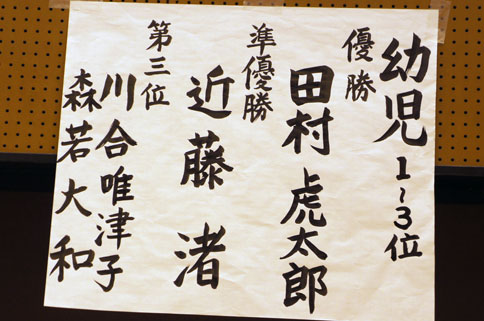 幼児1~3位
優勝
田村虎太郎
準優勝
近藤渚
第三位
川合唯津子
森若大和